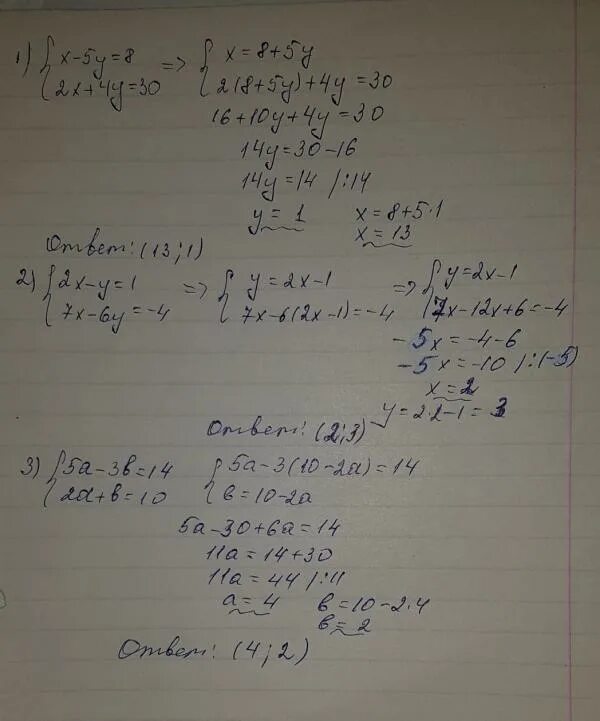 1) { x-5y=8 => { x=8+5y
2x+4y=30 2(8+5y)+4y=30
16+10y+4y=30
14y=30-16
14y=14 /:14
y=1 x=8+5·1
x=13
Ответ: (13;1)
2) { 2x-y=1 => { y=2x-1 => { y=2x-1
7x-6y=-4 7x-6(2x-1)=-4 7x-12x+6=-4
-5x=-4-6
-5x=-10 /:(-5)
x=2
y=2·2-1=3
Ответ: (2;3)
3) { 5a-3b=14 { 5a-3(10-2a)=14
2a+b=10 b=10-2a
5a-30+6a=14
11a=14+30
11a=44 /:11
a=4 b=10-2·4
b=2
Ответ: (4;2)